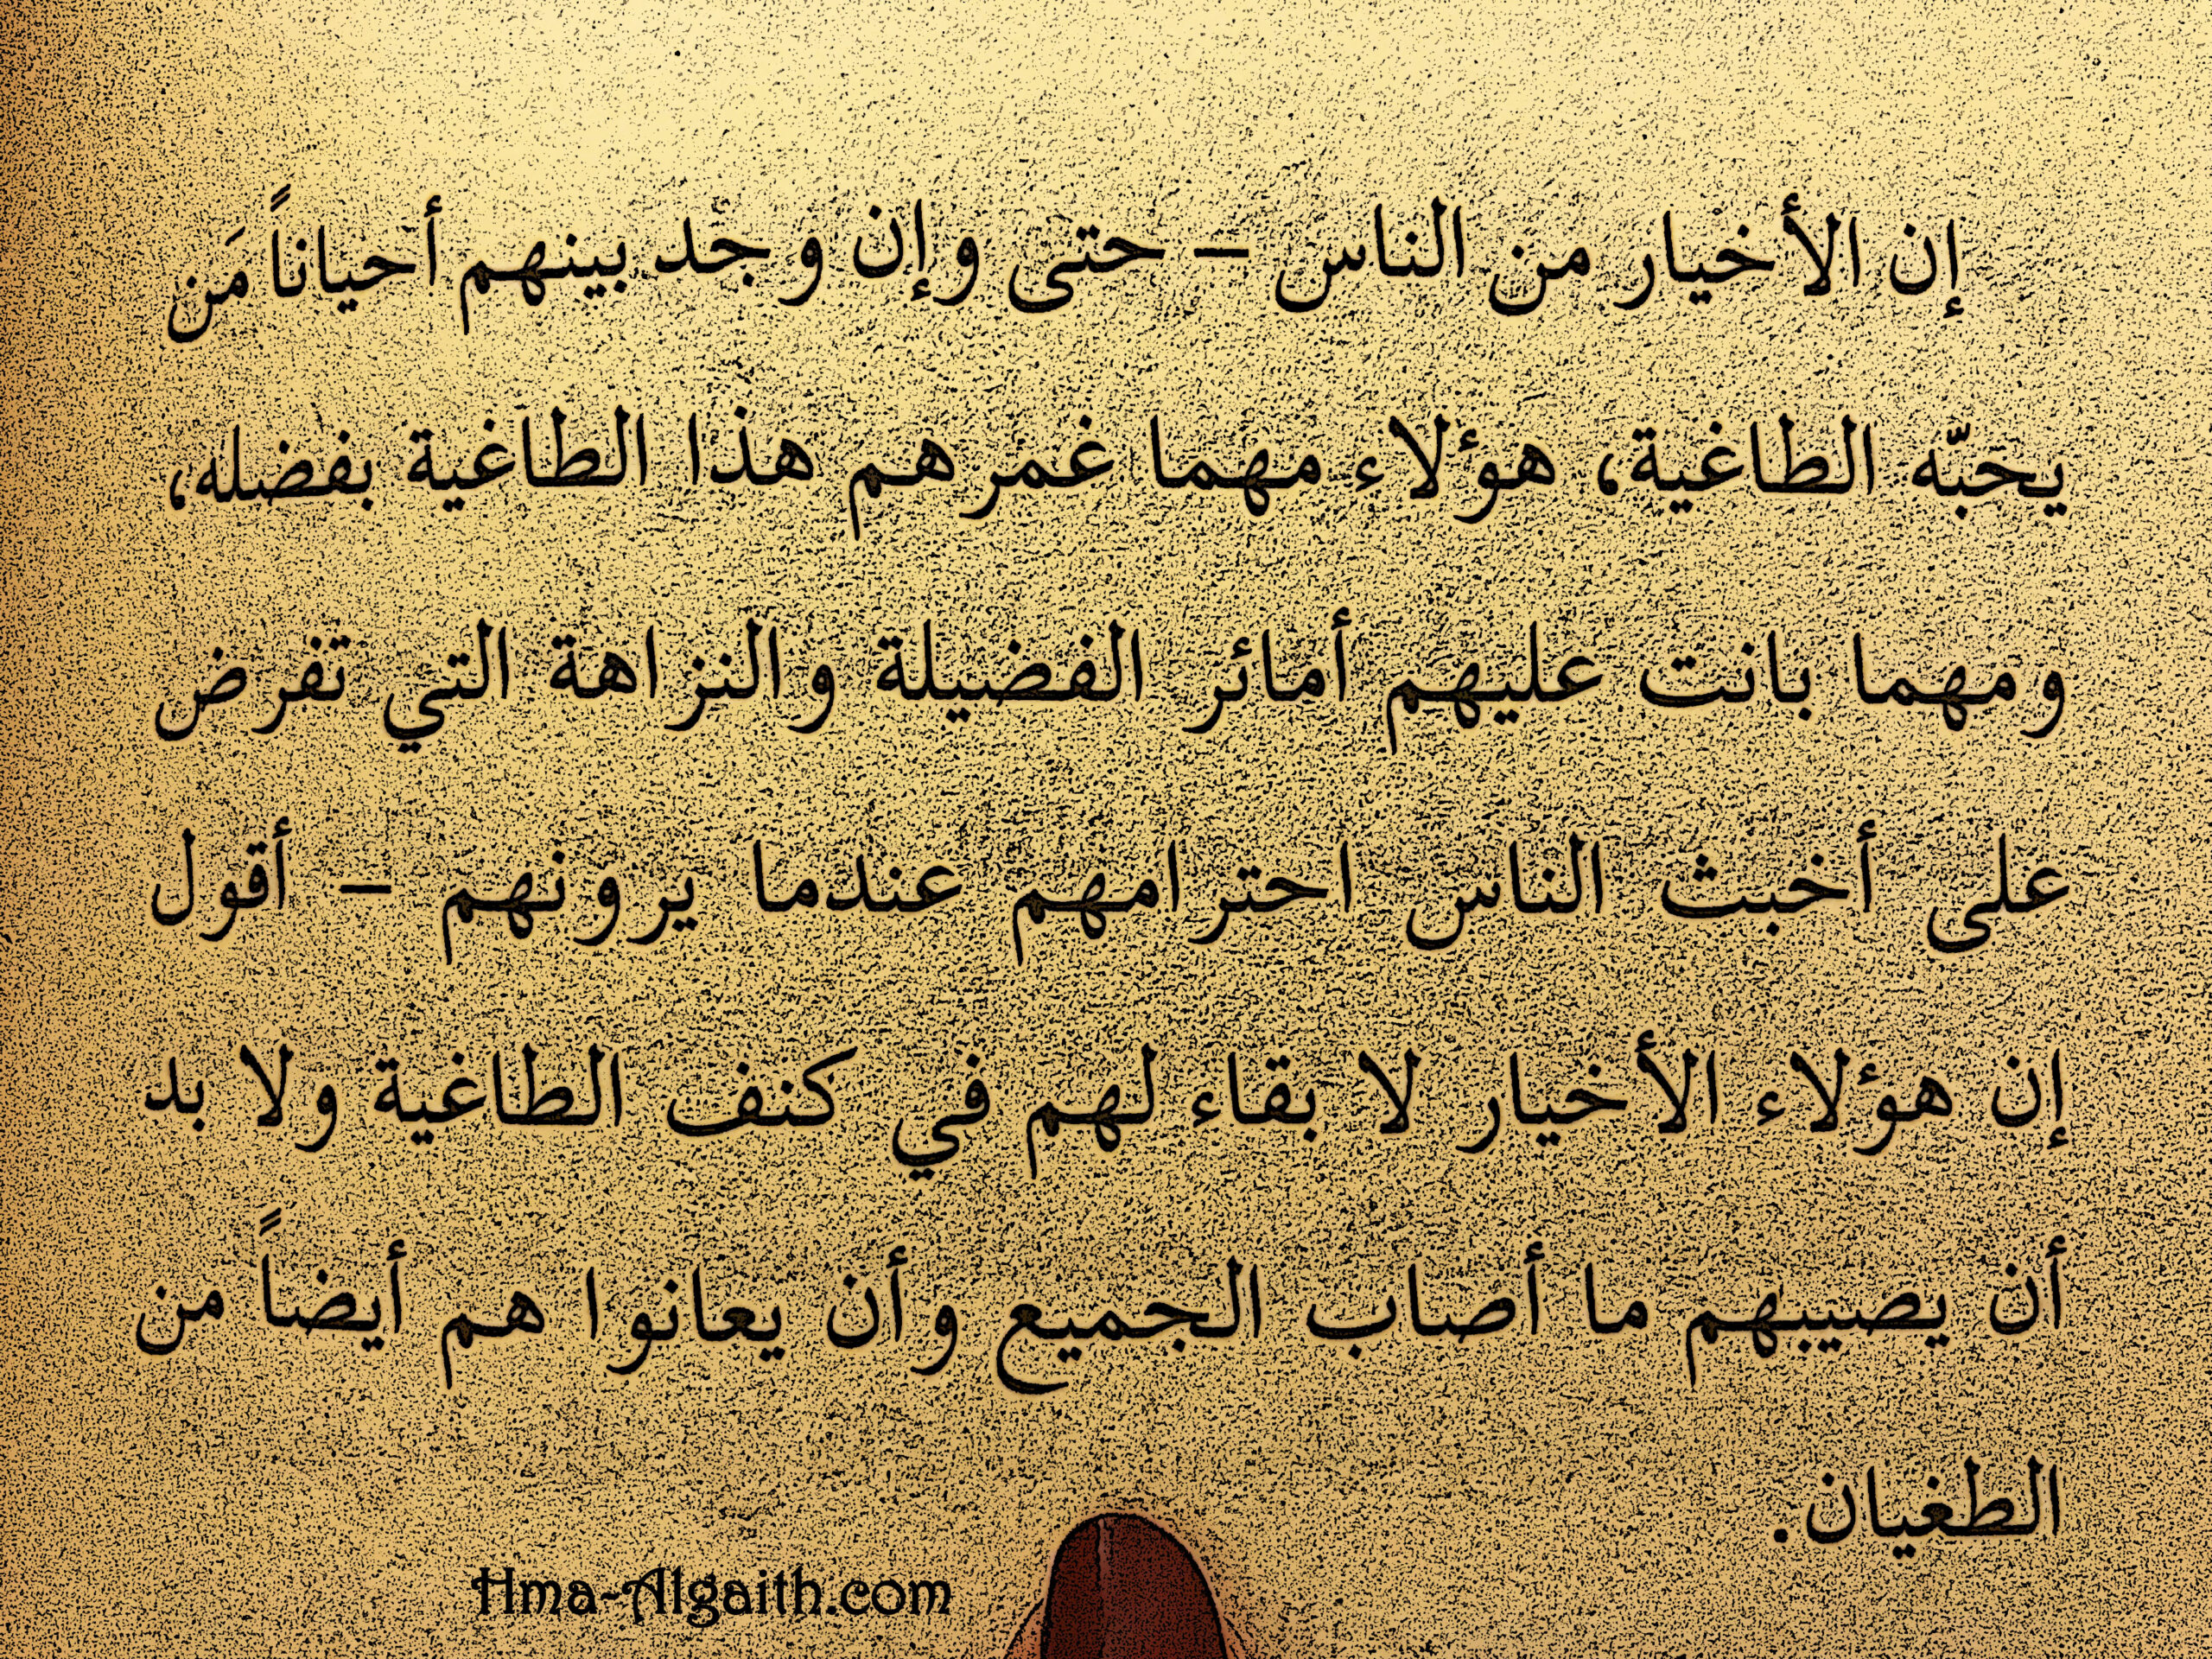 إن الأخيار من الناس – حتى وإن وجد بينهم أحياناً مَن
يحبّه الطاغية، هؤلاء مهما غمرهم هذا الطاغية بفضله،
ومهما بانت عليهم أمائر الفضيلة والنزاهة التي تفرض
على أخبث الناس احترامهم عندما يرونهم – أقول
إن هؤلاء الأخيار لا بقاء لهم في كنف الطاغية ولا بد
أن يصيبهم ما أصاب الجميع وأن يعانوا هم أيضاً من
الطغيان.
Hma-Algaith.com